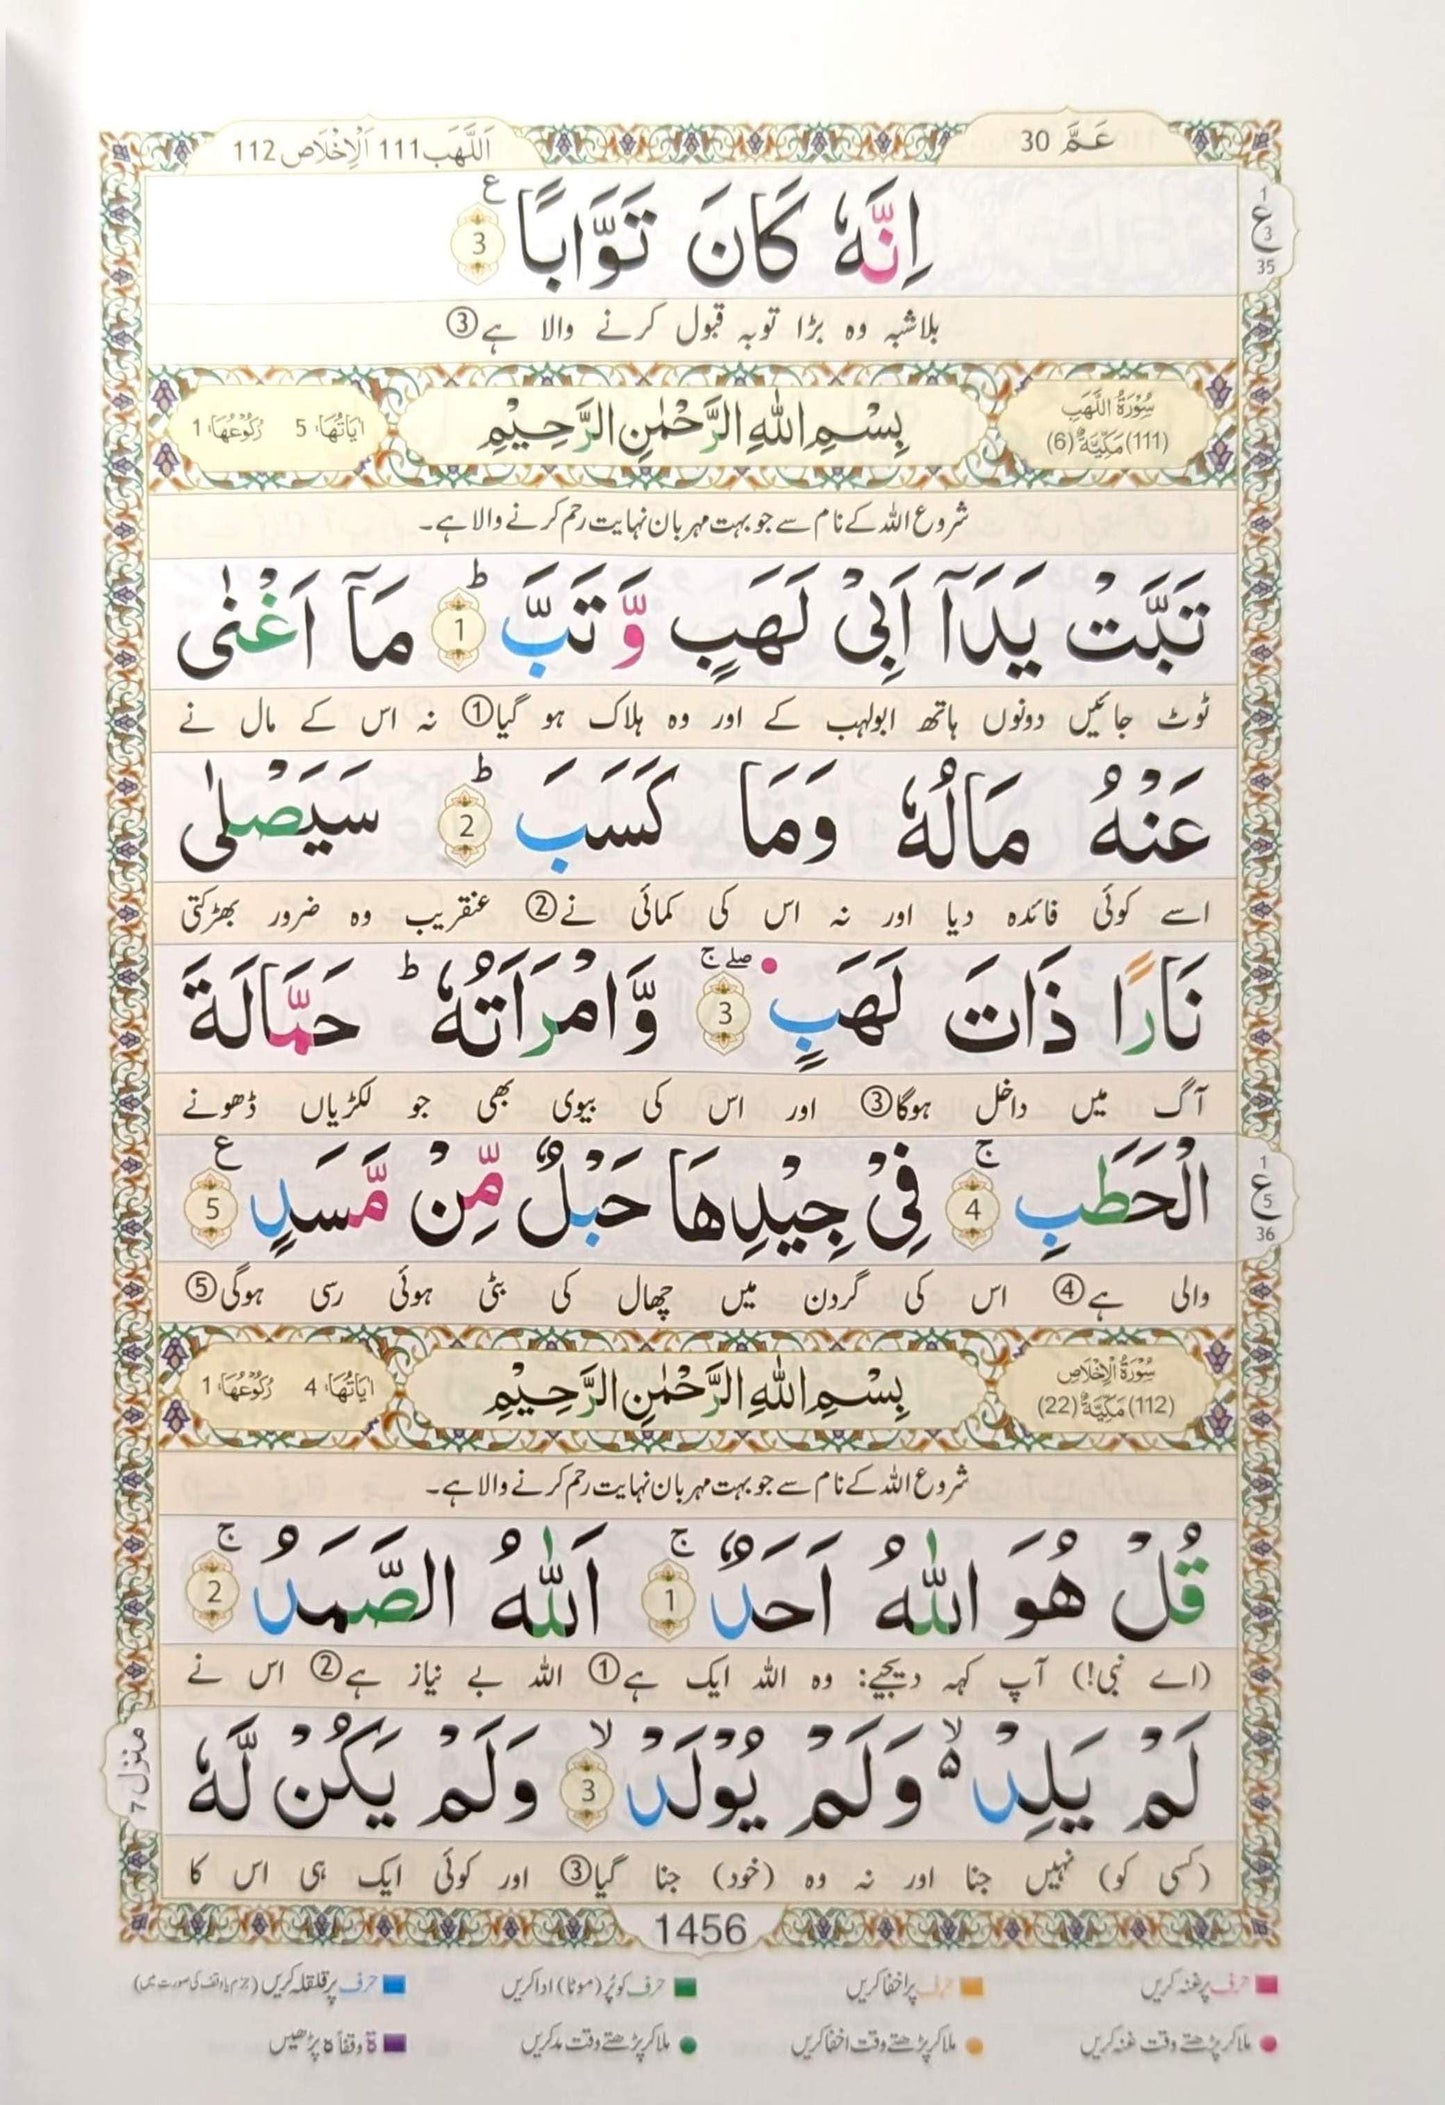 عَمَّ 30
اَللَّهَب 111 اَلْاِخْلَاص 112
اِنَّهٗ كَانَ تَوَّابًا 3 ع
1 ع 3 35
بلاشبہ وہ بڑا توبہ قبول کرنے والا ہے③
سُوْرَةُ اللَّهَبِ
(111) مَكِّيَّةٌ (6)
بِسْمِ اللهِ الرَّحْمٰنِ الرَّحِيْمِ
اٰيَاتُهَا: 5 رُكُوْعُهَا: 1
شروع اللہ کے نام سے جو بہت مہربان نہایت رحم کرنے والا ہے۔
تَبَّتْ يَدَآ اَبِيْ لَهَبٍ وَّتَبَّ ؕ 1 مَآ اَغْنٰى
ٹوٹ جائیں دونوں ہاتھ ابولہب کے اور وہ ہلاک ہو گیا① نہ اس کے مال نے
عَنْهُ مَالُهٗ وَمَا كَسَبَ ؕ 2 سَيَصْلٰى
اسے کوئی فائدہ دیا اور نہ اس کی کمائی نے② عنقریب وہ ضرور بھڑکتی
نَارًا ذَاتَ لَهَبٍ ۖۚ 3 وَّامْرَاَتُهٗ ؕ حَمَّالَةَ
آگ میں داخل ہوگا③ اور اس کی بیوی بھی جو لکڑیاں ڈھونے
الْحَطَبِ ۚ 4 فِيْ جِيْدِهَا حَبْلٌ مِّنْ مَّسَدٍ 5 ع
1 ع 5 36
والی ہے④ اس کی گردن میں چھال کی بٹی ہوئی رسی ہوگی⑤
سُوْرَةُ الْاِخْلَاصِ
(112) مَكِّيَّةٌ (22)
بِسْمِ اللهِ الرَّحْمٰنِ الرَّحِيْمِ
اٰيَاتُهَا: 4 رُكُوْعُهَا: 1
شروع اللہ کے نام سے جو بہت مہربان نہایت رحم کرنے والا ہے۔
قُلْ هُوَ اللّٰهُ اَحَدٌ ۚ 1 اَللّٰهُ الصَّمَدُ ۚ 2
(اے نبی!) آپ کہہ دیجیے: وہ اللہ ایک ہے① اللہ بے نیاز ہے② اس نے
لَمْ يَلِدْ ۙ۬ وَلَمْ يُوْلَدْ ۙ 3 وَلَمْ يَكُنْ لَّهٗ
(کسی کو) نہیں جنا اور نہ وہ (خود) جنا گیا③ اور کوئی ایک ہی اس کا
منزل 7
1456
حرف پر غنہ کریں
حرف پر اخفا کریں
حرف کو پُر (موٹا) ادا کریں
حرف پر قلقلہ کریں (جزم یا وقف کی صورت میں)
ملا کر پڑھتے وقت غنہ کریں
ملا کر پڑھتے وقت اخفا کریں
ملا کر پڑھتے وقت مد کریں
ة وقفاً ہ پڑھیں